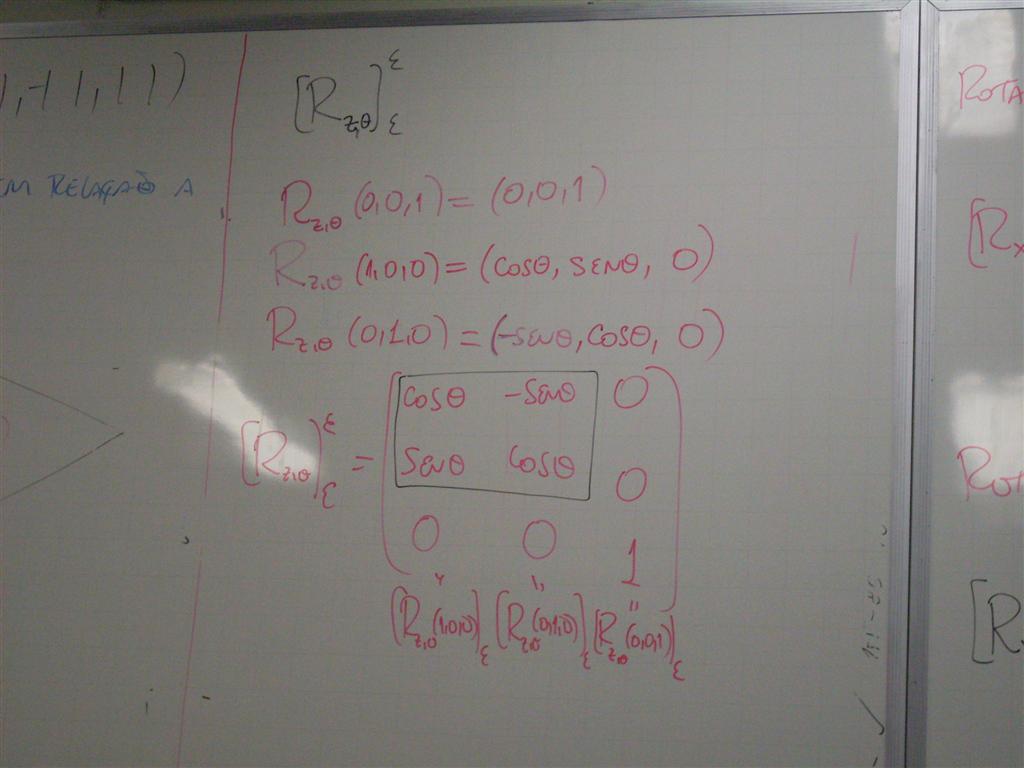 1, -1 1, 1 1)
EM RELAÇÃO A
[R_z,θ]^ε_ε
R_z,θ (0,0,1) = (0,0,1)
R_z,θ (1,0,0) = (cosθ, SENθ, 0)
R_z,θ (0,1,0) = (-SENθ, cosθ, 0)
[R_z,θ]^ε_ε =
cosθ -SENθ 0
SENθ cosθ 0
0 0 1
[R_z,θ(1,0,0)]_ε [R_z,θ(0,1,0)]_ε [R_z,θ(0,0,1)]_ε
ROTA
[R_x
ROT
[R